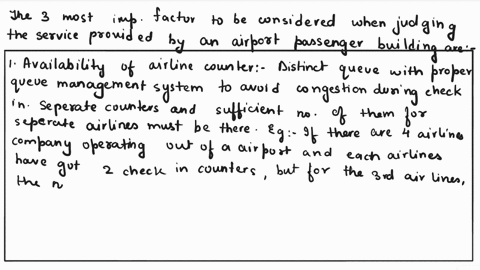 The 3 most imp. factor to be considered when judging
the service provided by an airport passenger building are:-
1. Availability of airline counter:- Distinct queue with proper
queue management system to avoid congestion during check
in. Seperate counters and sufficient no. of them for
seperate airlines must be there. Eg:- If there are 4 airline
company operating out of a airport and each airlines
have got 2 check in counters, but for the 3rd air lines,
the n